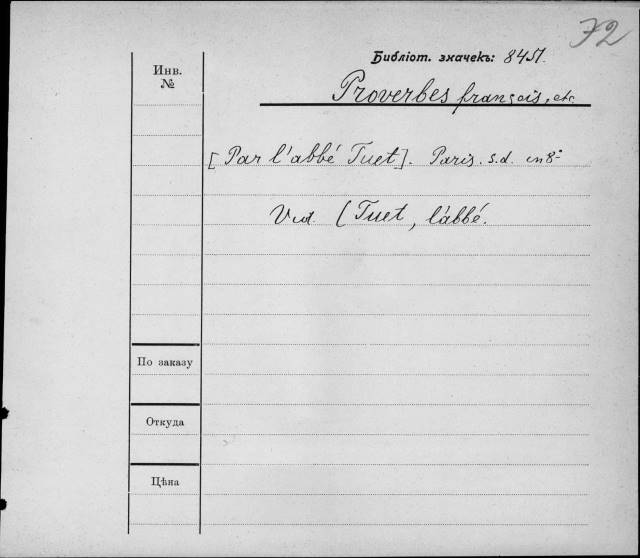 72
Библіот. значекъ: 8451.
Инв.
№
Proverbes français, etc
[Par l'abbé Tuet]. Paris. s.d. in 8°
Vid. (Tuet, l'abbé.
По заказу
Откуда
Цѣна